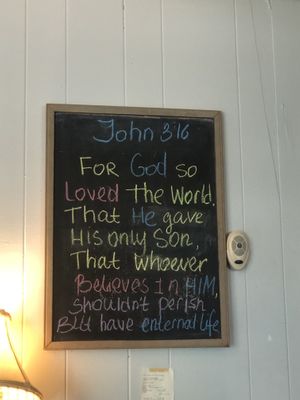 John 3:16
FOR God so
Loved The World.
That He gave
HIS only SON,
That Whoever
Believes In HIM,
shouldn't perish
But have enternal life